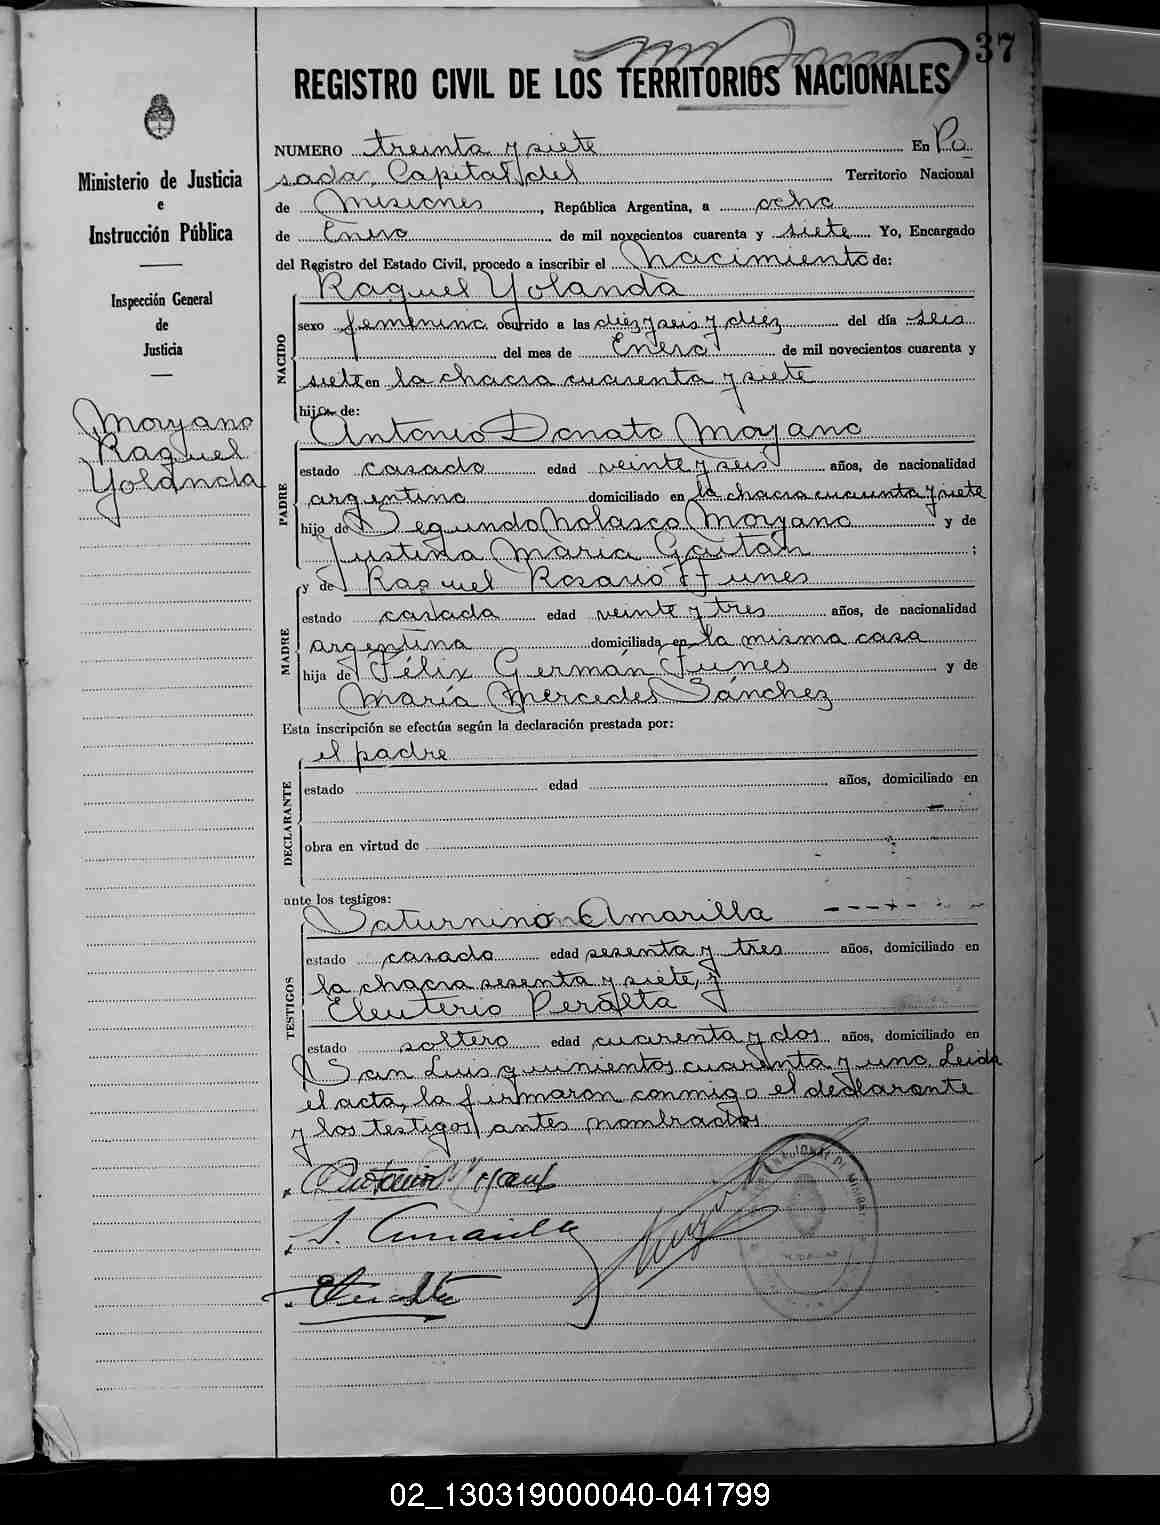 37
REGISTRO CIVIL DE LOS TERRITORIOS NACIONALES
Ministerio de Justicia
e
Instrucción Pública
Inspección General
de
Justicia
Moyano
Raquel
Yolanda
NUMERO treinta y siete En Po
sada, Capital del Territorio Nacional
de Misiones, República Argentina, a ocho
de Enero de mil novecientos cuarenta y siete Yo, Encargado
del Registro del Estado Civil, procedo a inscribir el nacimiento de:
NACIDO
Raquel Yolanda
sexo femenino ocurrido a las diez y seis y diez del día seis
del mes de Enero de mil novecientos cuarenta y
siete en la chacra cuarenta y siete
hija de:
PADRE
Antonio Donato Moyano
estado casado edad veinte y seis años, de nacionalidad
argentina domiciliado en la chacra cuarenta y siete
hijo de Segundo Nolasco Moyano y de
Justina María Gaitán ;
MADRE
y de Raquel Rosario Funes
estado casada edad veinte y tres años, de nacionalidad
argentina domiciliada en la misma casa
hija de Félix Germán Funes y de
María Mercedes Sánchez
Esta inscripción se efectúa según la declaración prestada por:
DECLARANTE
el padre
estado edad años, domiciliado en
obra en virtud de
ante los testigos:
TESTIGOS
Saturnino Amarilla
estado casado edad sesenta y tres años, domiciliado en
la chacra sesenta y siete, y
Eleuterio Peralta
estado soltero edad cuarenta y dos años, domiciliado en
San Luis quinientos cuarenta y uno. Leida
el acta, la firmaron conmigo el declarante
y los testigos antes nombrados.
S. Amarilla
02_130319000040-041799